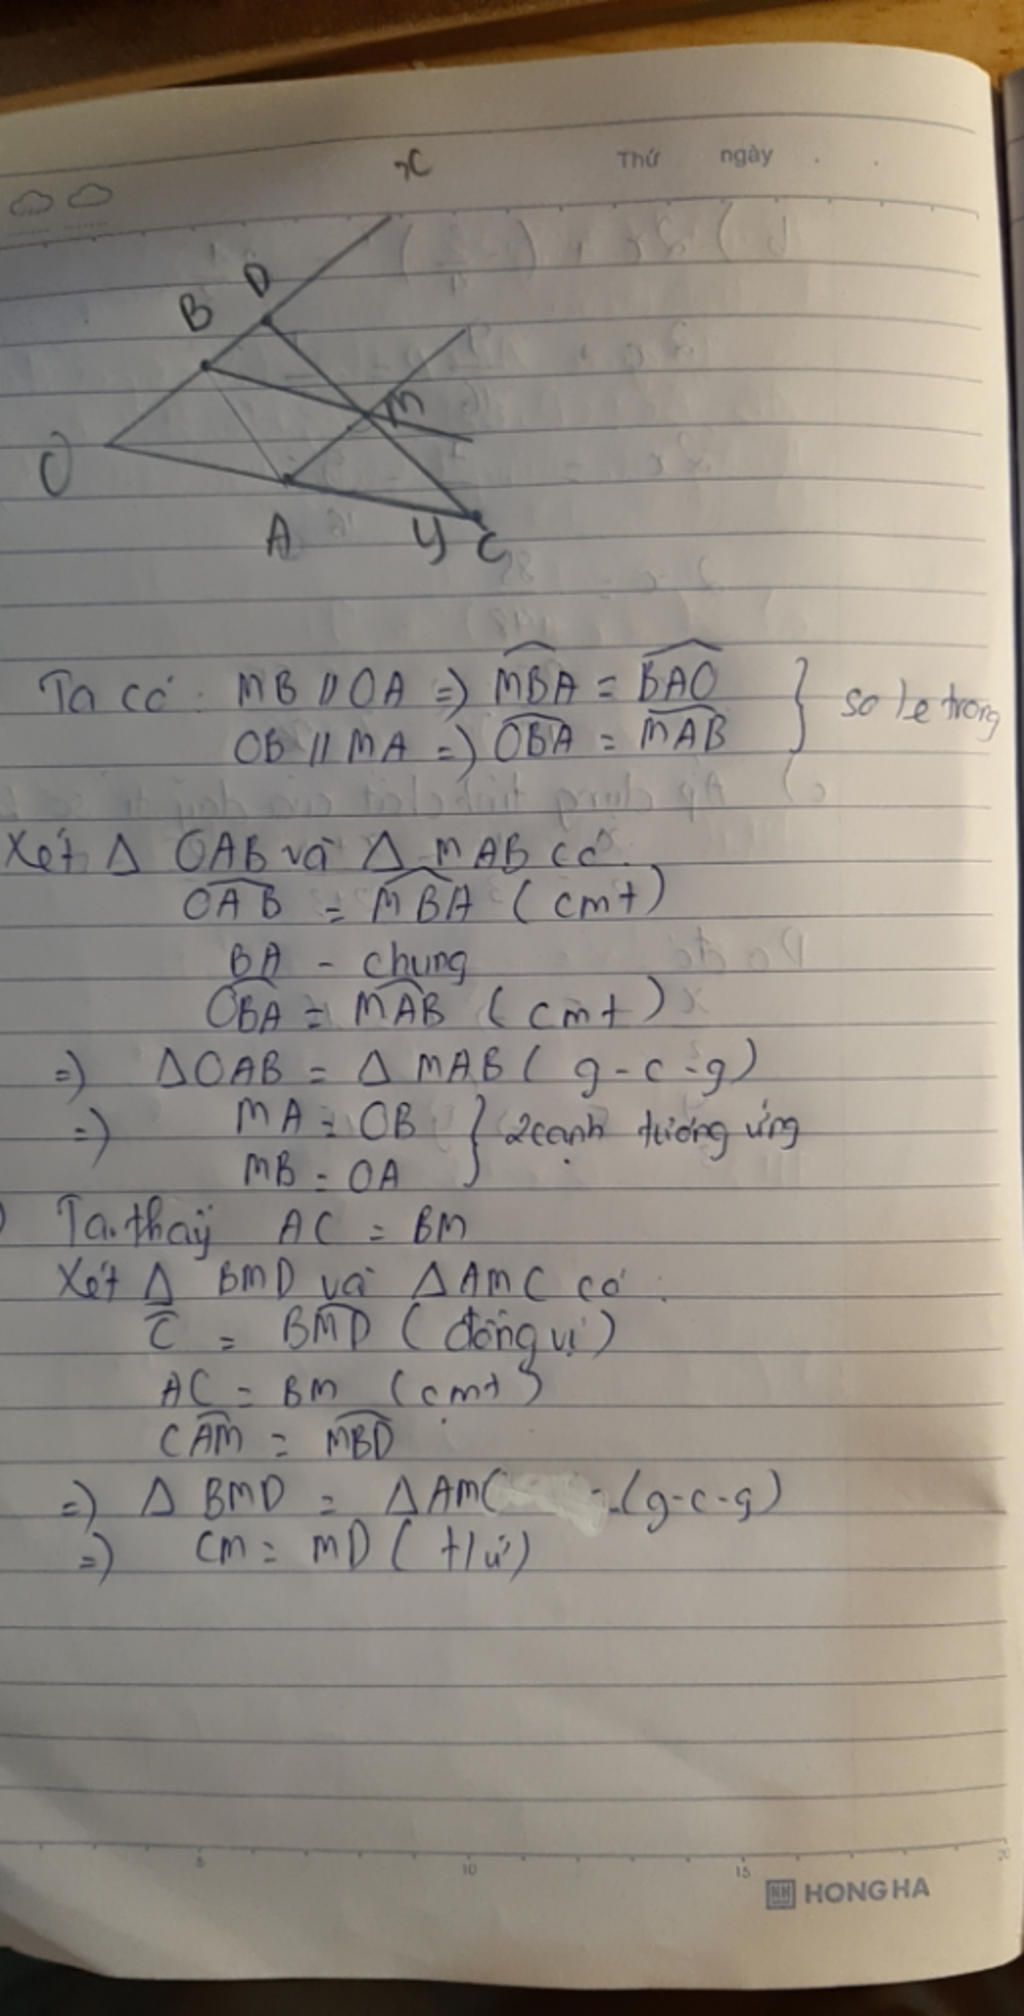 Thứ ngày
x
D
B
M
O
A y C
Ta có: MB // OA => MBA = BAO
OB // MA => OBA = MAB } so le trong
Xét Δ OAB và Δ MAB có
OAB = MBA (cmt)
BA - chung
OBA = MAB (cmt)
=> ΔOAB = Δ MAB (g-c-g)
=> MA = OB
MB = OA } 2 cạnh tương ứng
) Ta thấy AC = BM
Xét Δ BMD và ΔAMC có:
C = BMD (đồng vị)
AC = BM (cmt)
CAM = MBD
=> Δ BMD = ΔAMC (g-c-g)
=> CM = MD (t/ứ)
5 10 15 20
HONG HA